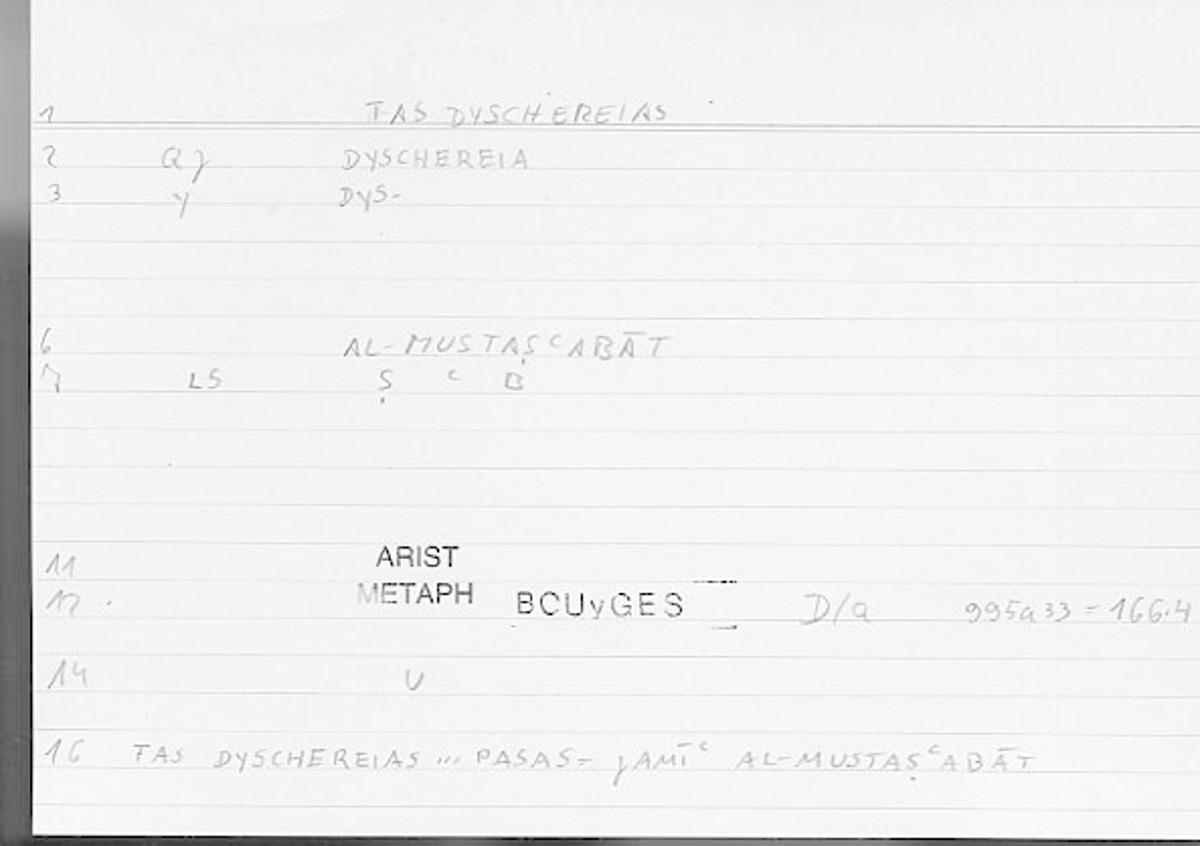 1 TAS DYSCHEREIAS
2 Qj DYSCHEREIA
3 y DYS-
6 AL-MUSTAṢᶜABĀT
7 LS Ṣ ᶜ B
11 ARIST
12 METAPH BOUyGES D/a 995a33 = 166.4
14 U
16 TAS DYSCHEREIAS ... PASAS = jAMĪᶜ AL-MUSTAṢᶜABĀT